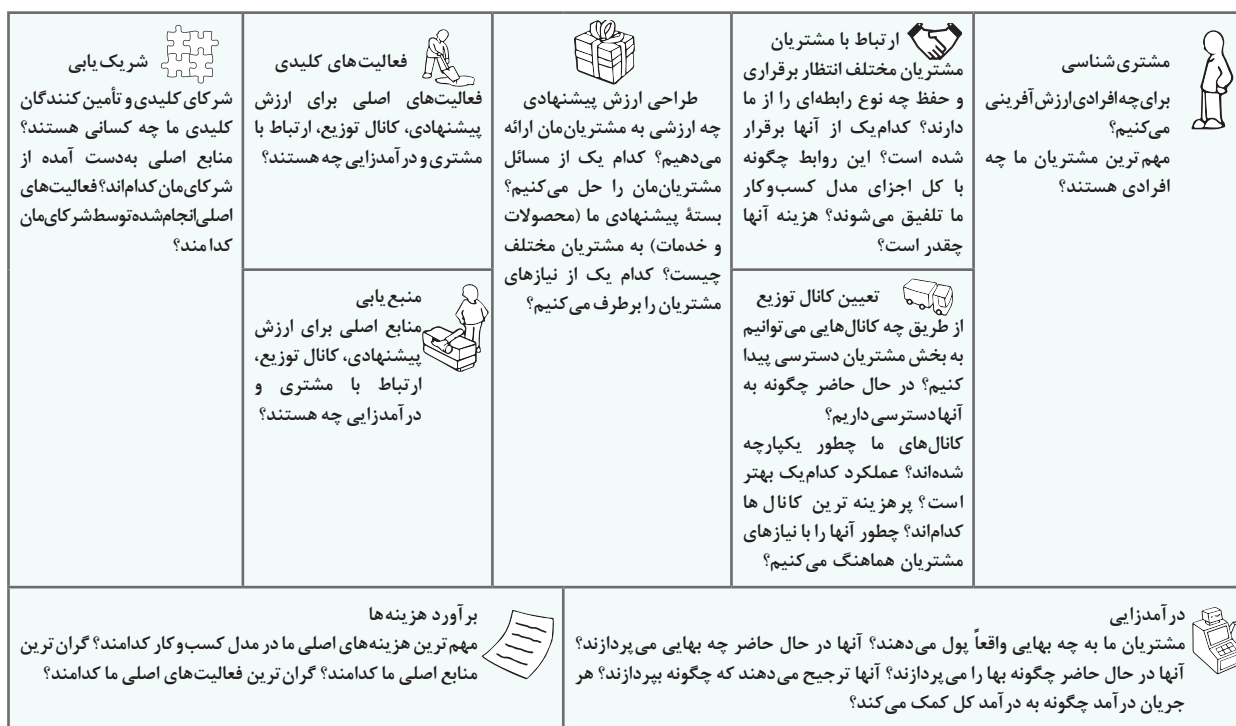 مشتری‌شناسی
برای چه افرادی ارزش آفرینی
می‌کنیم؟
مهم‌ترین مشتریان ما چه
افرادی هستند؟
ارتباط با مشتریان
مشتریان مختلف انتظار برقراری
و حفظ چه نوع رابطه‌ای را از ما
دارند؟ کدام‌یک از آنها برقرار
شده است؟ این روابط چگونه
با کل اجزای مدل کسب‌وکار
ما تلفیق می‌شوند؟ هزینه آنها
چقدر است؟
تعیین کانال توزیع
از طریق چه کانال‌هایی می‌توانیم
به بخش مشتریان دسترسی پیدا
کنیم؟ در حال حاضر چگونه به
آنها دسترسی داریم؟
کانال‌های ما چطور یکپارچه
شده‌اند؟ عملکرد کدام‌یک بهتر
است؟ پرهزینه ترین کانال ها
کدام‌اند؟ چطور آنها را با نیازهای
مشتریان هماهنگ می‌کنیم؟
طراحی ارزش پیشنهادی
چه ارزشی به مشتریان‌مان ارائه
می‌دهیم؟ کدام یک از مسائل
مشتریان‌مان را حل می‌کنیم؟
بستهٔ پیشنهادی ما (محصولات
و خدمات) به مشتریان مختلف
چیست؟ کدام یک از نیازهای
مشتریان را برطرف می‌کنیم؟
فعالیت‌های کلیدی
فعالیت‌های اصلی برای ارزش
پیشنهادی، کانال توزیع، ارتباط با
مشتری و درآمدزایی چه هستند؟
منبع‌یابی
منابع اصلی برای ارزش
پیشنهادی، کانال توزیع،
ارتباط با مشتری و
درآمدزایی چه هستند؟
شریک‌یابی
شرکای کلیدی و تأمین کنندگان
کلیدی ما چه کسانی هستند؟
منابع اصلی به‌دست آمده از
شرکای‌مان کدام‌اند؟ فعالیت‌های
اصلی انجام‌شده توسط شرکای‌مان
کدامند؟
درآمدزایی
مشتریان ما به چه بهایی واقعاً پول می‌دهند؟ آنها در حال حاضر چه بهایی می‌پردازند؟
آنها در حال حاضر چگونه بها را می‌پردازند؟ آنها ترجیح می‌دهند که چگونه بپردازند؟ هر
جریان درآمد چگونه به درآمد کل کمک می‌کند؟
برآورد هزینه‌ها
مهم‌ترین هزینه‌های اصلی ما در مدل کسب‌وکار کدامند؟ گران‌ترین
منابع اصلی ما کدامند؟ گران‌ترین فعالیت‌های اصلی ما کدامند؟